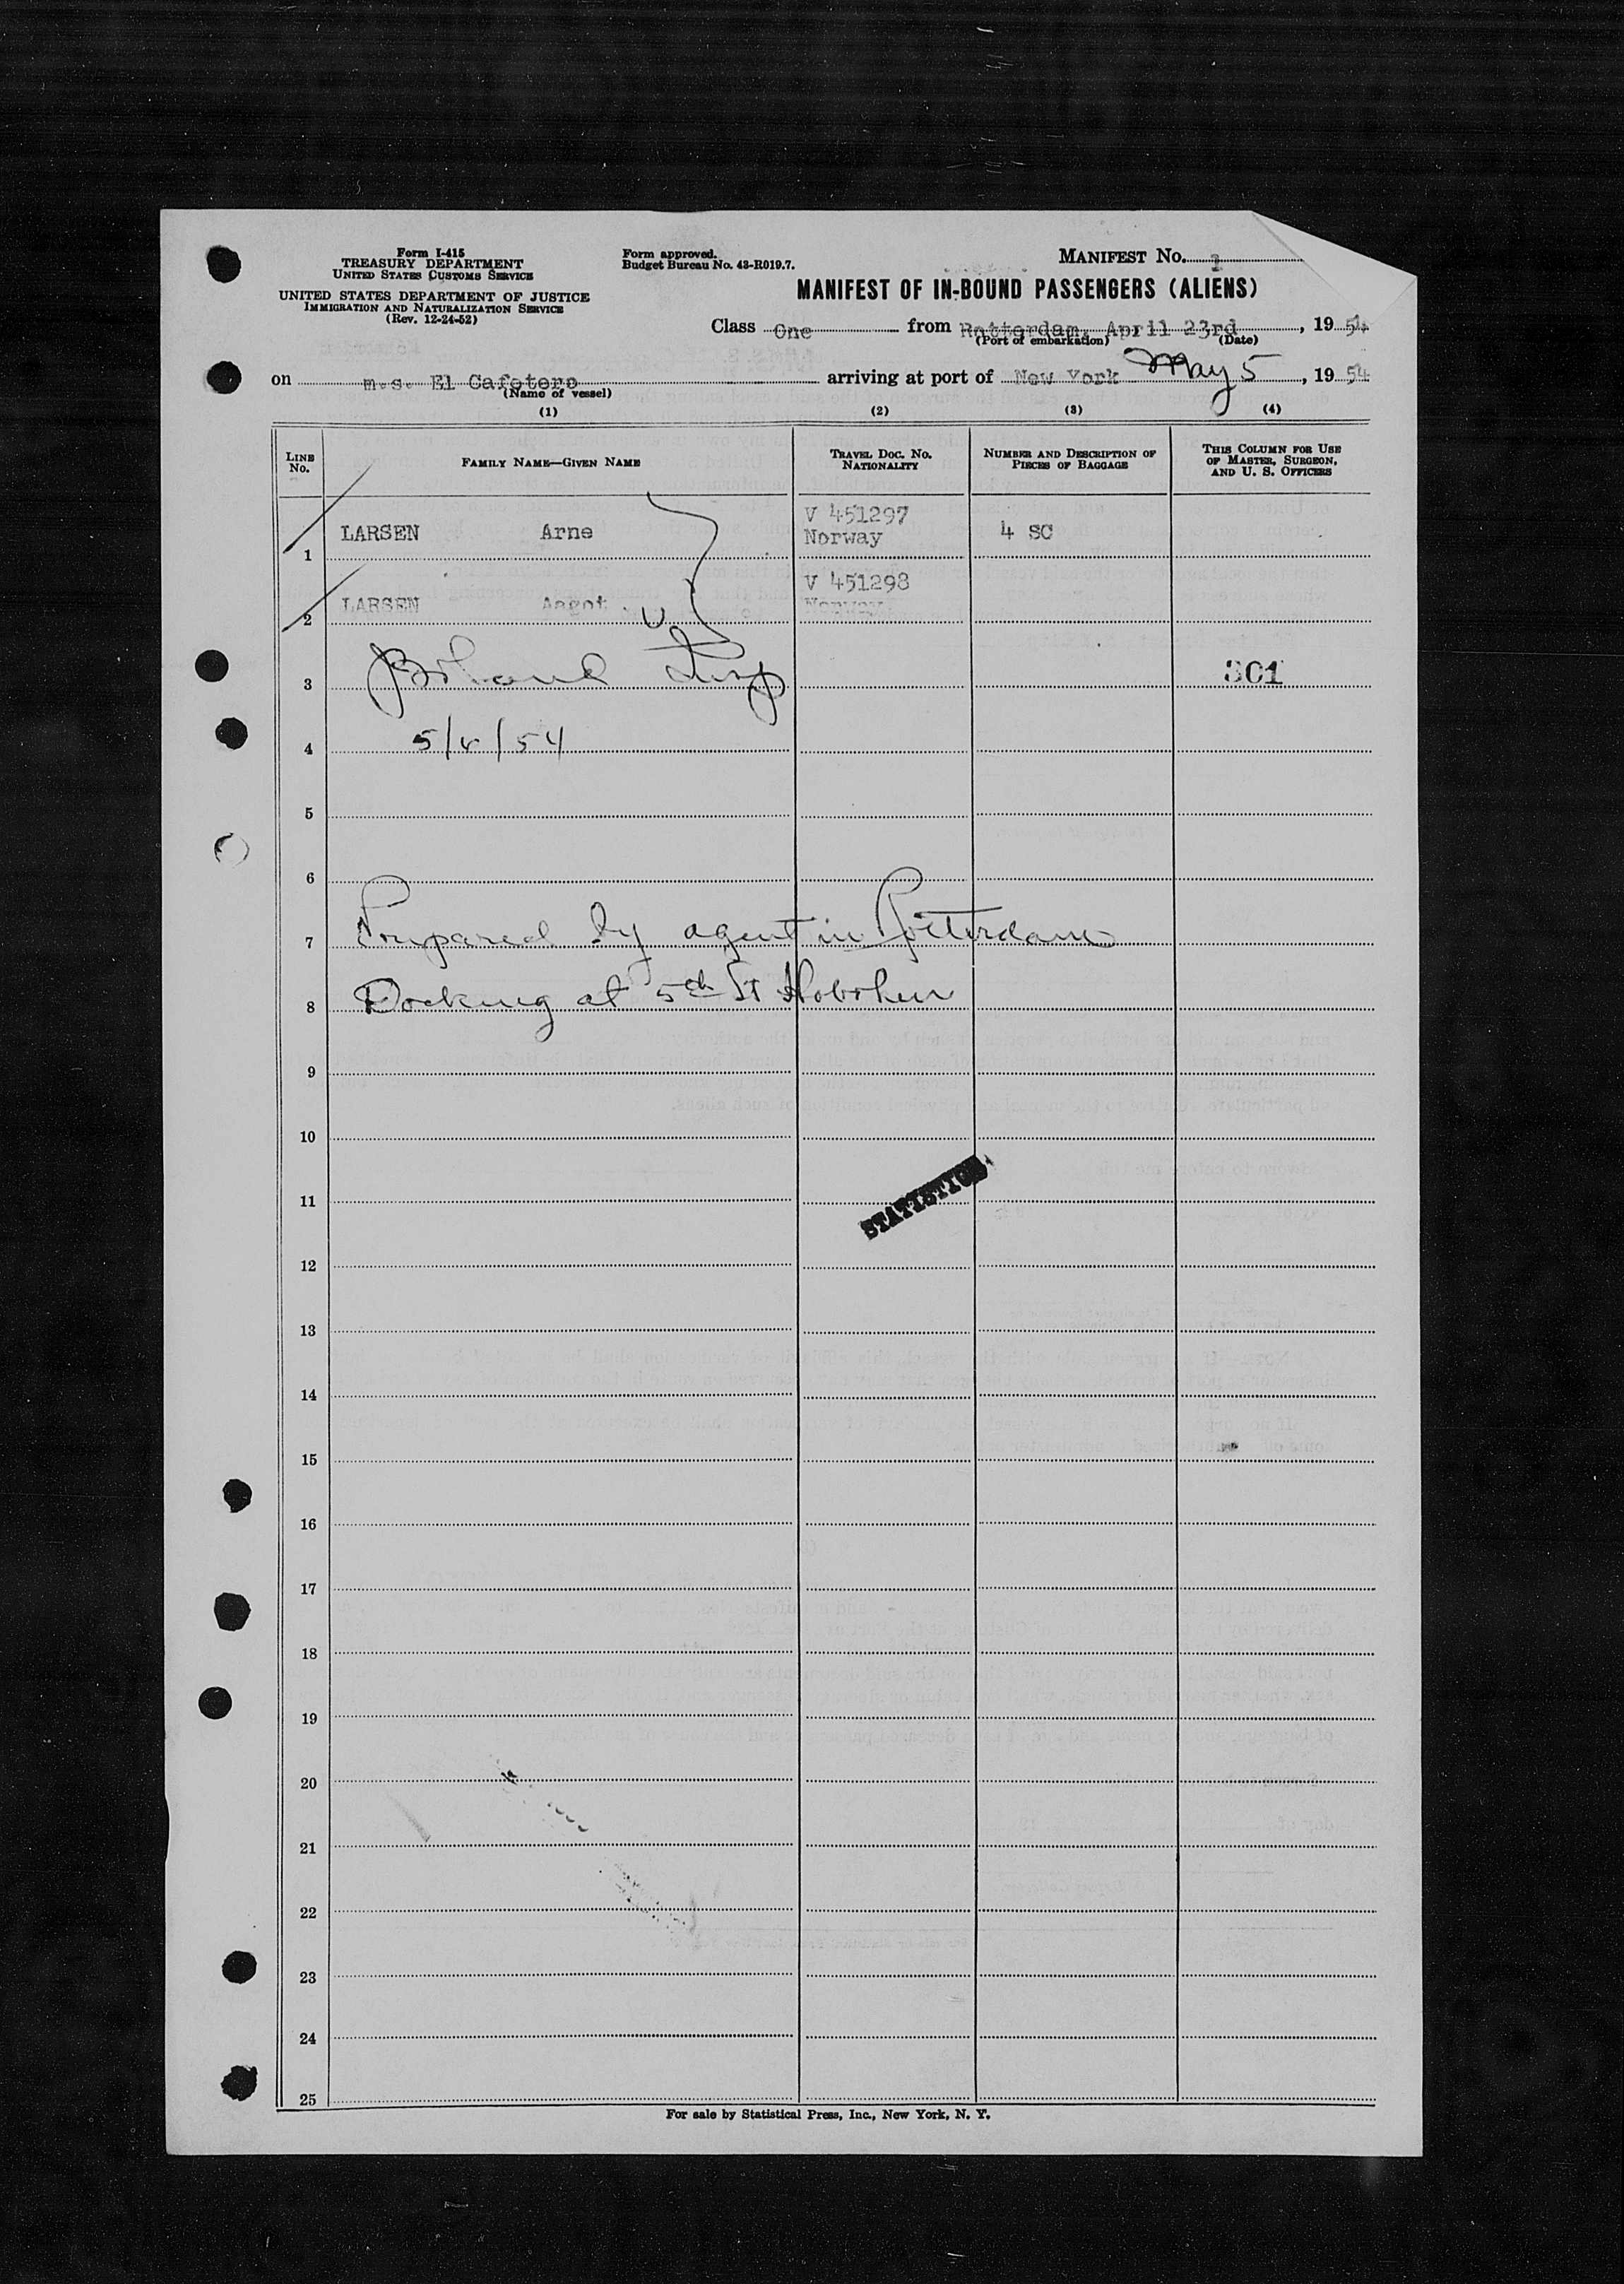 Form I-415
TREASURY DEPARTMENT
UNITED STATES CUSTOMS SERVICE
UNITED STATES DEPARTMENT OF JUSTICE
IMMIGRATION AND NATURALIZATION SERVICE
(Rev. 12-24-52)
Form approved.
Budget Bureau No. 43-R019.7.
MANIFEST NO. 1
MANIFEST OF IN-BOUND PASSENGERS (ALIENS)
Class One from Rotterdam, April 23rd, 19 54
(Port of embarkation) (Date)
on m.s. El Cafetero arriving at port of New York May 5, 19 54
(Name of vessel)
(1) (2) (3) (4)
LINE NO. FAMILY NAME—GIVEN NAME TRAVEL DOC. NO. NATIONALITY NUMBER AND DESCRIPTION OF PIECES OF BAGGAGE THIS COLUMN FOR USE OF MASTER, SURGEON, AND U. S. OFFICERS
1 LARSEN Arne V 451297 Norway 4 SC
2 LARSEN Aagot V 451298 Norway
3 Insp 301
4 5/ /54
5
6
7 Prepared by agent in Rotterdam
8 Docking at 5th St Hoboken
9
10
11 STATISTICS
12
13
14
15
16
17
18
19
20
21
22
23
24
25
For sale by Statistical Press, Inc., New York, N. Y.